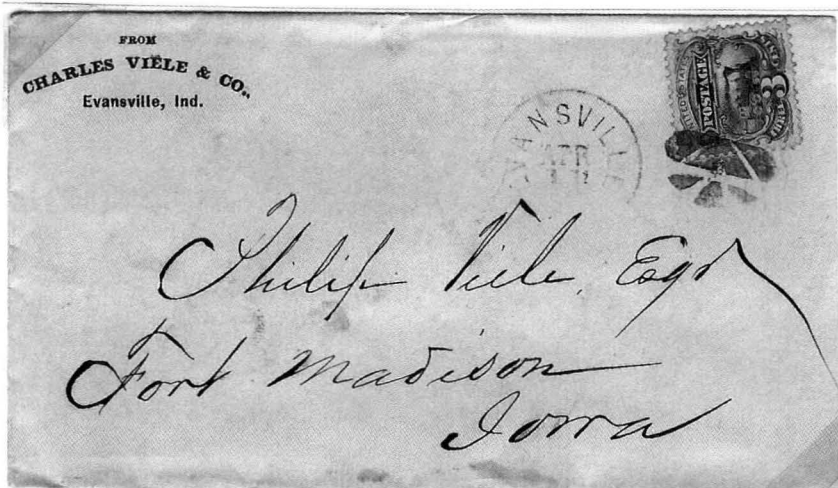 FROM
CHARLES VIELE & CO.,
Evansville, Ind.
EVANSVILLE
APR
UNITED STATES
POSTAGE
3
THREE
Philip Viele, Esqr
Fort Madison
Iowa